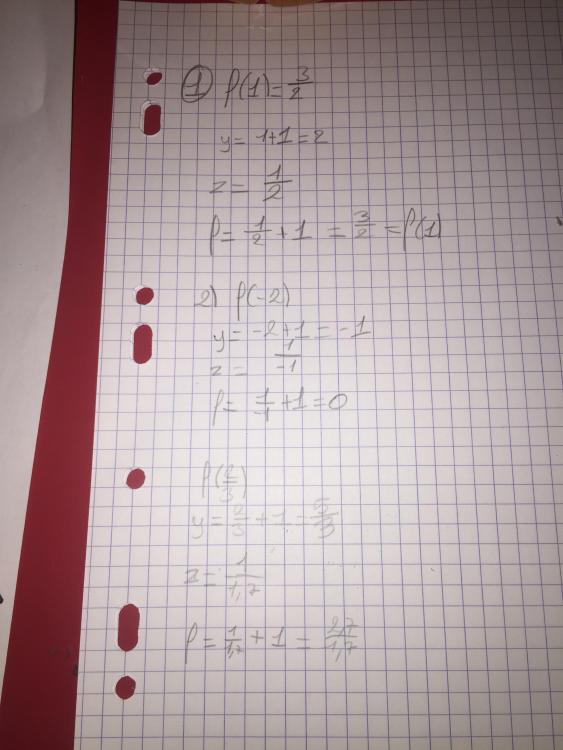 ① f(1) = 3/2
y = 1+1 = 2
z = 1/2
f = 1/2 + 1 = 3/2 = f(1)
2) f(-2)
y = -2+1 = -1
z = 1/-1
f = 1/-1 + 1 = 0
f(2/3)
y = 2/3 + 1 = 5/3
z = 1/1,7
f = 1/1,7 + 1 = 2,7/1,7